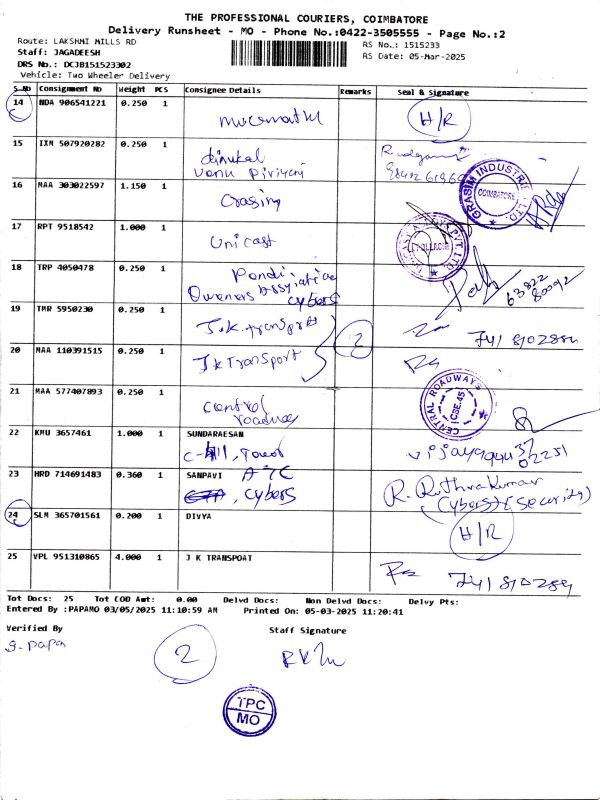 THE PROFESSIONAL COURIERS, COIMBATORE
Delivery Runsheet - MO - Phone No.:0422-3505555 - Page No.:2
Route: LAKSHMI MILLS RD
RS No.: 1515233
Staff: JAGADEESH
RS Date: 05-Mar-2025
DRS No.: DCJB151523302
Vehicle: Two Wheeler Delivery
S No Consignment No Weight PCS Consignee Details Remarks Seal & Signature
14 NDA 906541221 0.250 1 H/R
15 IXM 507920282 0.250 1 dinukal
Vanu Piriyani
16 MAA 303022597 1.150 1 Grasing
GRASIM INDUSTRIES LTD. COIMBATORE
17 RPT 9518542 1.000 1 Unicast
POLLACHI
18 TRP 4050478 0.250 1
Owners cybers
63822
80092
19 TMR 5950230 0.250 1 J.K. transport
20 MAA 110391515 0.250 1 JK Transport 2
21 MAA 577407893 0.250 1 central
roadways
CENTRAL ROADWAYS CBE.45
22 KMU 3657461 1.000 1 SUNDARAESAN
02251
23 HRD 714691483 0.360 1 SANPAVI ATC
, Cybers
R. Ruthrakumar
(Cybers) (Security)
24 SLM 365701561 0.200 1 DIVYA H/R
25 VPL 951310865 4.000 1 J K TRANSPOAT
Tot Docs: 25 Tot COD Amt: 0.00 Delvd Docs: Non Delvd Docs: Delvy Pts:
Entered By :PAPAMO 03/05/2025 11:10:59 AM Printed On: 05-03-2025 11:20:41
Verified By Staff Signature
S. Papa
2
TPC
MO